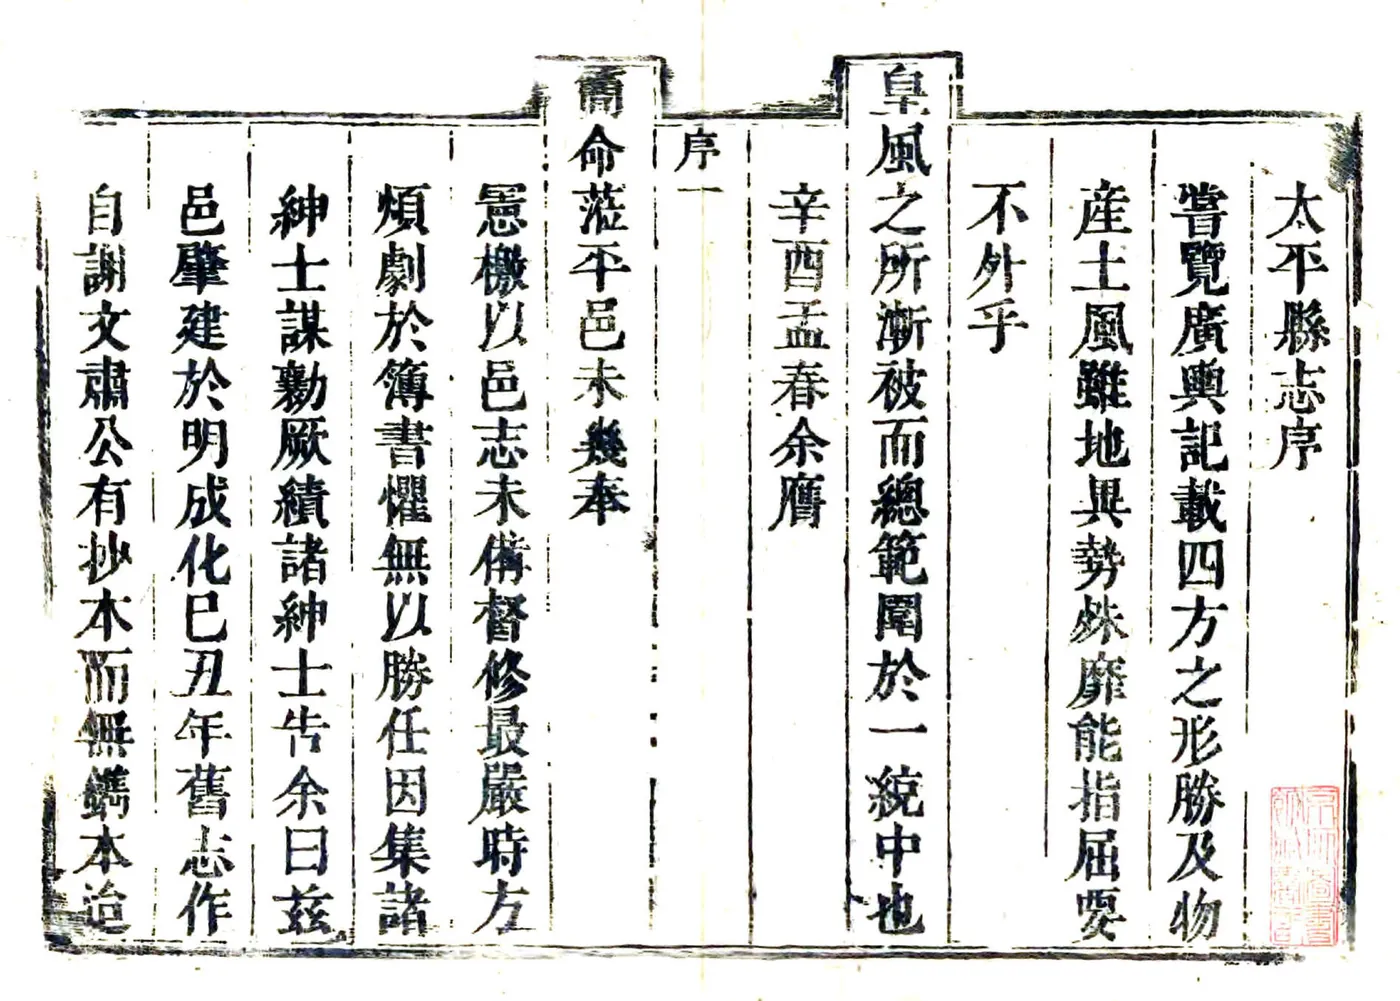 太平縣志序
嘗覽廣輿記載四方之形勝及物
産土風雖地異勢殊靡能指屈要
不外乎
皇風之所漸被而總範圍於一統中也
辛酉孟春余膺
序一
簡命蒞平邑未幾奉
憲檄以邑志未備督修最嚴時方
煩劇於簿書懼無以勝任因集諸
紳士謀勷厥績諸紳士告余曰茲
邑肇建於明成化巳丑年舊志作
自謝文肅公有抄本而無鐫本迨